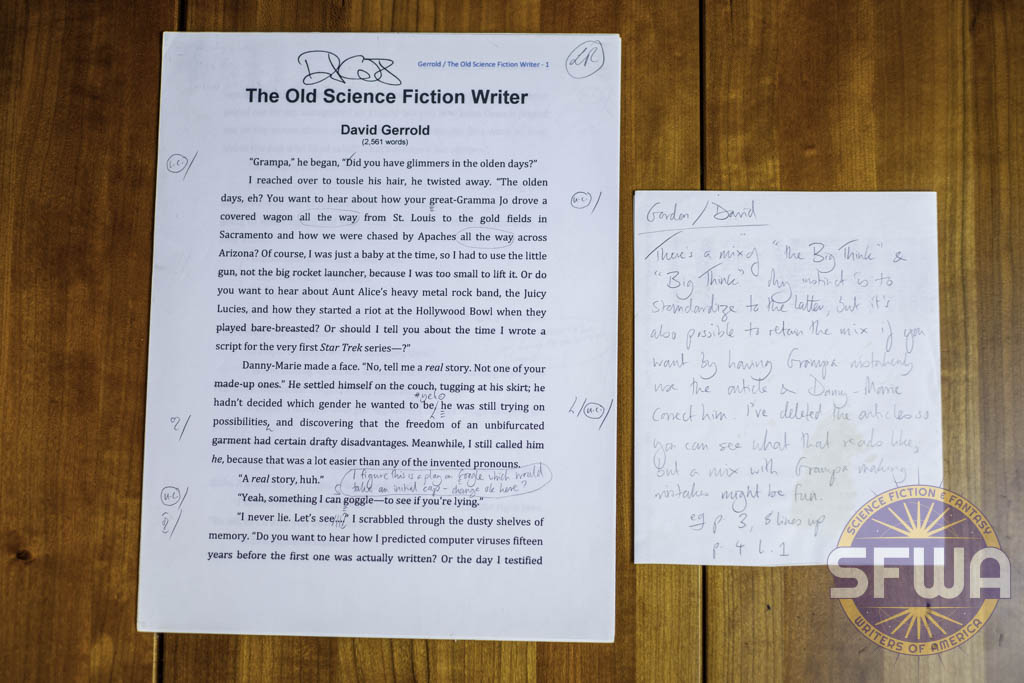 Gerrold / The Old Science Fiction Writer - 1
The Old Science Fiction Writer
David Gerrold
(2,561 words)
“Grampa,” he began, “Did you have glimmers in the olden days?”
I reached over to tousle his hair, he twisted away. “The olden
days, eh? You want to hear about how your great-Gramma Jo drove a
covered wagon all the way from St. Louis to the gold fields in
Sacramento and how we were chased by Apaches all the way across
Arizona? Of course, I was just a baby at the time, so I had to use the little
gun, not the big rocket launcher, because I was too small to lift it. Or do
you want to hear about Aunt Alice’s heavy metal rock band, the Juicy
Lucies, and how they started a riot at the Hollywood Bowl when they
played bare-breasted? Or should I tell you about the time I wrote a
script for the very first Star Trek series—?”
Danny-Marie made a face. “No, tell me a real story. Not one of your
made-up ones.” He settled himself on the couch, tugging at his skirt; he
#yet
hadn’t decided which gender he wanted to be, he was still trying on
possibilities, and discovering that the freedom of an unbifurcated
garment had certain drafty disadvantages. Meanwhile, I still called him
he, because that was a lot easier than any of the invented pronouns.
“A real story, huh.”
I figure this is a play on Google which would
take an initial cap - change ok here?
“Yeah, something I can goggle—to see if you’re lying.”
“I never lie. Let’s see...” I scrabbled through the dusty shelves of
memory. “Do you want to hear how I predicted computer viruses fifteen
years before the first one was actually written? Or the day I testified
l.c.
u.c.
u.c.
u.c.
Gordon / David
There's a mix of "the Big Think" &
"Big Think" My instinct is to
standardize to the latter, but it's
also possible to retain the mix if you
want by having Grampa mistakenly
use the article & Danny-Marie
correct him. I've deleted the articles so
you can see what that reads like,
but a mix with Grampa making
mistakes might be fun.
eg p 3, 8 lines up
p. 4 l. 1
SCIENCE FICTION & FANTASY
SFWA
WRITERS OF AMERICA